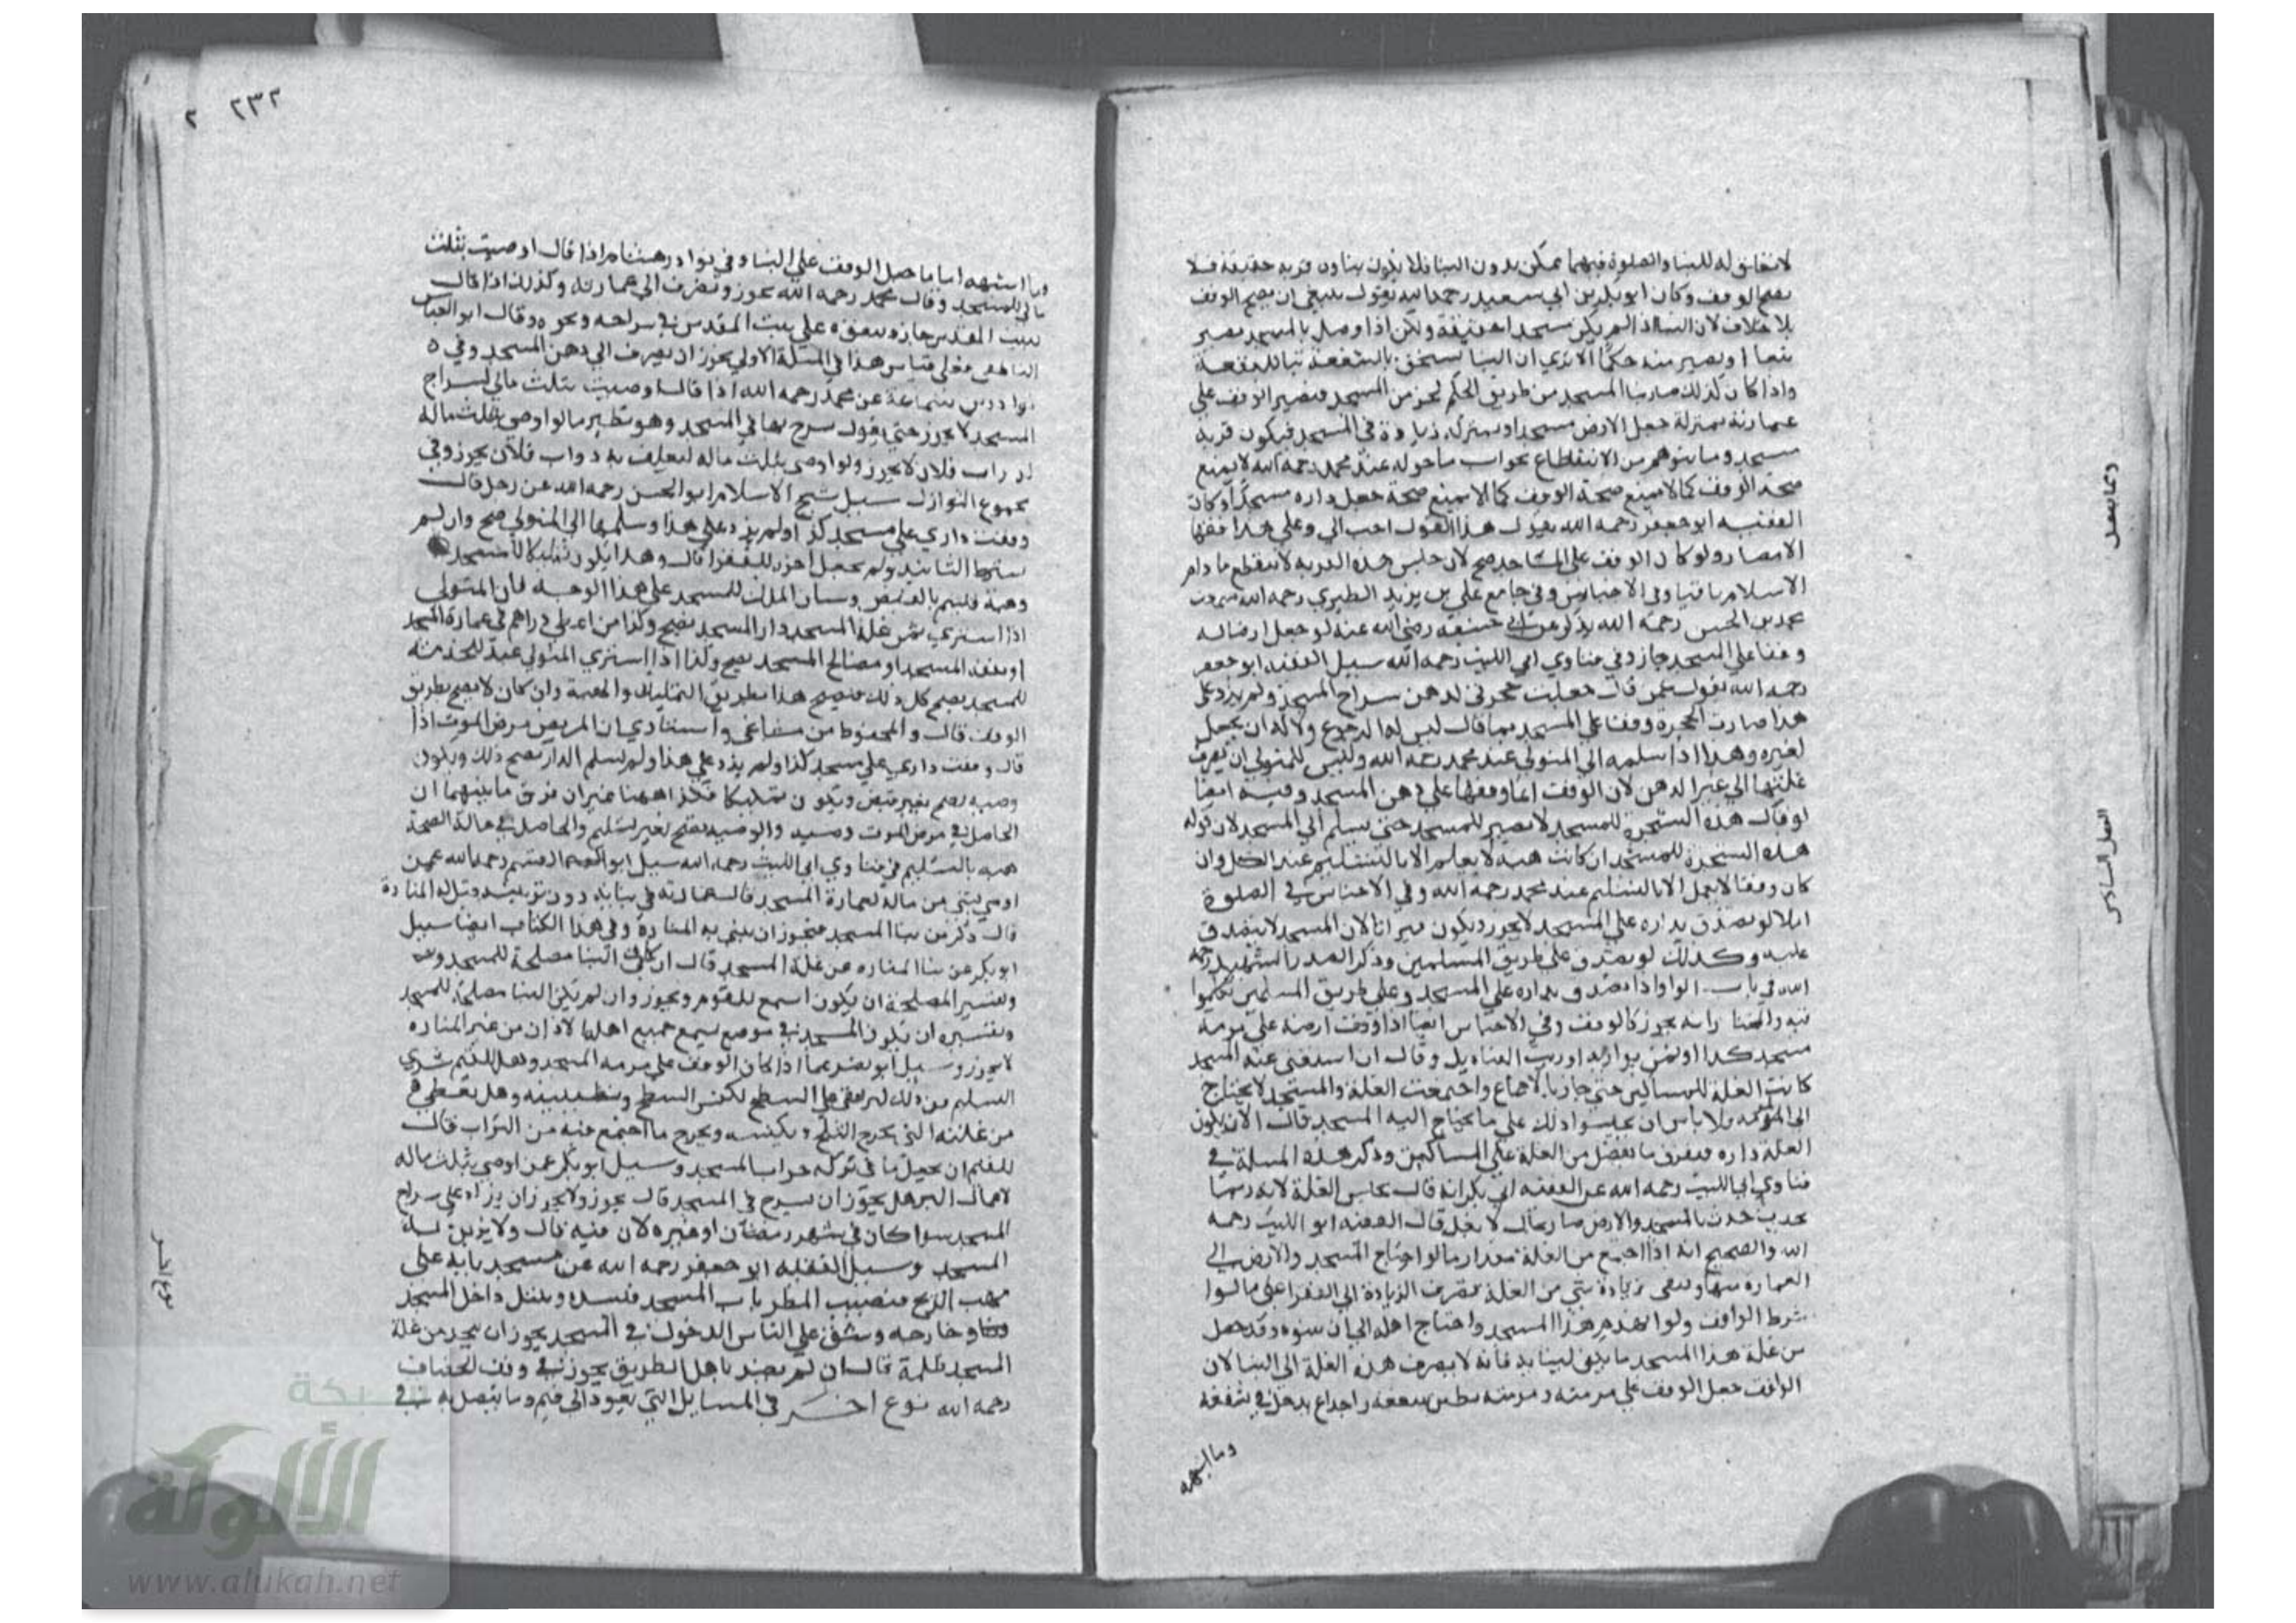 لا تعلق له للبنا والصلوة فيهما ممكن بدون البنا فلا يكون بناوه قربة حقيقة فلا
يصح الوقف وكان ابو بكر بن ابي سعيد رحمه الله يقول ينبغي ان يصح الوقف
بلا خلاف لان البنا اذا لم يكن مسجدا حقيقة ولكن اذا وصل بالمسجد يصير
تبعا او يصير منه حكما الا تري ان البنا يستحق بالشفعة تبا للبقعة
واذا كان كذلك صار بنا المسجد من طريق الحكم كجز من المسجد فيصير الوقف علي
عمارته بمنزلة جعل الارض مسجدا وبمنزلة زيادة في المسجد فيكون قربة
مسجد وما يتوهم من الانقطاع بخراب ما حوله عند محمد رحمه الله لا يمنع
صحة الوقف كما لا يمنع صحة الوقف كما لا يمنع صحة جعل داره مسجدا وكان
الفقيه ابو جعفر رحمه الله يقول هذا القول احب الي وعلي هذا فقها
الامصار ولو كان الوقف علي المساجد صح لان جنس هذه القربة لا ينقطع ما دام
الاسلام باقيا وفي الاجناس وفي جامع علي بن يزيد الطبري رحمه الله
محمد بن الحسن رحمه الله يذكر عن ابي حنيفة رضي الله عنه لو جعل ارضا له
وقفا علي المسجد جاز وفي فتاوي ابي الليث رحمه الله سيل الفقيه ابو جعفر
رحمه الله يقول عمن قال جعلت حجرتي لدهن سراج المسجد ولم يزد علي
هذا صارت الحجرة وقفا علي المسجد بما قال ليس له الرجوع ولا له ان يجعل
لغيره وهذا اذا سلمه الي المتولي عند محمد رحمه الله وليس للمتولي ان يصرف
غلتها الي غير الدهن لان الوقف انما وقفها علي دهن المسجد وفيه ايضا
لو قال هذه الشجرة للمسجد لا يصير للمسجد حتي يسلم الي المسجد لان قوله
هذه الشجرة للمسجد ان كانت هبة لا يعلم الا بالتسليم عند الكل وان
كان وقفا لا يعمل الا بالتسليم عند محمد رحمه الله وفي الاجناس في الصلوة
املا لو تصدق بداره علي المسجد لا يجوز ويكون ميراثا لان المسجد لا يتصدق
عليه وكذلك لو تصدق علي طريق المسلمين وذكر الصدر الشهيد رحمه
الله في باب الواو اذا تصدق بداره علي المسجد وعلي طريق المسلمين تكلموا
فيه والمختار انه يجوز كالوقف وفي الاجناس ايضا اذا وقف ارضه علي مرمة
مسجد كذا او ثمن بواريه او زيت القناديل وقال ان استغني عنه المسجد
كانت الغلة للمساكين حتي جاز بالاجماع واجتمعت الغلة والمسجد لا يحتاج
الي المرمة فلا باس ان يحبسوا ذلك علي ما يحتاج اليه المسجد قال الا ان يكون
الغلة داره فيفرق ما يفضل من الغلة علي المساكين وذكر هذه المسلة في
فتاوي ابي الليث رحمه الله عن الفقيه ابي بكر انه قال يحبس الغلة لانه ربما
يحدث حدث بالمسجد والارض صار بحال لا يغل قال الفقيه ابو الليث رحمه
الله والصحيح انه اذا اجتمع من الغلة مقدار ما لو احتاج المسجد والارض الي
العمارة منها وتبقي زيادة شي من الغلة تصرف الزيادة الي الفقرا علي ما
شرط الواقف ولو انهدم هذا المسجد واحتاج اهله الي ان يبنوه وقد حصل
من غلة هذا المسجد ما يكفي لبنايه فانه لا يصرف هذه الغلة الي البنا لان
الواقف جعل الوقف علي مرمته ومرمته تطيين سقفه واجداع يدخل في سقفه
وما اشبهه
وما يتصل
الفصل السادس
٢٣٢ ٢
وما اشبهه اما ما حصل الوقف علي البنا وفي نوادر هشام اذا قال اوصيت بثلث
مالي للمسجد وقال محمد رحمه الله يجوز ويصرف الي عمارته وكذلك اذا قال
لبيت المقدس جاز وينفق علي بيت المقدس في سراجه ونحوه وقال ابو العباس
الناطفي فعلي قياس هذا في المسلة الاولي يجوز ان يصرف الي دهن المسجد وفي
نوادر بن سماعة عن محمد رحمه الله اذا قال اوصيت بثلث مالي لسراج
المسجد لا يجوز حتي يقول يسرج بها في المسجد وهو نظير ما لو اوصي بثلث ماله
لدواب فلان لا يجوز ولو اوصي بثلث ماله ليعلف به دواب فلان يجوز وفي
مجموع النوازل سيل شيخ الاسلام ابو الحسن رحمه الله عن رجل قال
وقفت داري علي مسجد كذا ولم يزد علي هذا وسلمها الي المتولي صح وان لم
يشترط التابيد ولم يجعل اخره للفقرا قال وهذا يكون تمليكا للمسجد
وهبة فيتم بالقبض وبيان الملك للمسجد علي هذا الوجه فان المتولي
اذا اشتري من غلة المسجد دار المسجد يصح وكذا من اعطي دراهم في عمارة المسجد
او نفقة المسجد او مصالح المسجد يصح وكذا اذا اشتري المتولي عبدا لخدمة
للمسجد يصح كل ذلك فيصح هذا بطريق التمليك والهبة وان كان لا يصح بطريق
الوقف قال والمحفوظ من مشايخي واستاذي ان المريض مرض الموت اذا
قال وقفت داري علي مسجد كذا ولم يزد علي هذا ولم يسلم الدار يصح ذلك ويكون
وصية تصح بغير قبض ويكون تمليكا فكذا ههنا غير ان فرق ما بينهما ان
الحاصل في مرض الموت وصية والوصية تصح بغير تسليم والحاصل في حالة الصحة
هبة بالتسليم في فتاوي ابي الليث رحمه الله سيل ابو القسم رحمه الله عمن
اوصي بشي من ماله لعمارة المسجد قال عمارته في بنايه دون تزيينه وقيل له المنارة
قال ذكر من بنا المسجد فيجوز ان يبني به المنارة وفي هذا الكتاب ايضا سيل
ابو بكر عن بنا المناره من غلة المسجد قال ان كان في البنا مصلحة للمسجد
وتفسير المصلحة ان يكون اسمع للقوم ويجوز وان لم يكن البنا مصلحة للمسجد
وتفسيره ان يكون المسجد في موضع يسمع جميع اهلها لاذان من غير المناره
لا يجوز وسيل ابو نصر عما اذا كان الوقف علي مرمة المسجد وهل للقيم شري
السليم من ذلك ليرتقي علي السطح لكنس السطح وتطيينه وهل يعطي
من غلته الذي يخرج الثلج ويكنسه ويخرج ما اجتمع فيه من التراب قال
للقيم ان يفعل ما في تركه خراب المسجد وسيل ابو بكر عمن اوصي بثلث ماله
لاعمال البر هل يجوز ان يسرج في المسجد قال يجوز ولا يجوز ان يزاد علي سراج
المسجد سوا كان في شهر رمضان او غيره لان فيه قال ولا يزين
المسجد وسيل الفقيه ابو جعفر رحمه الله عن مسجد بابه علي
مهب الريح فيصيب المطر باب المسجد فيفسد ويبتل داخل المسجد
وخارجه ويشق علي الناس الدخول في المسجد يجوز ان يتخذ من غلة
المسجد ظلة قال ان لم يضر باهل الطريق يجوز في وقف الخصاف
رحمه الله نوع اخر في المسايل التي تعود الي قيم وما يتصل به في
نوع اخر
شبكة
الألوكة
www.alukah.net